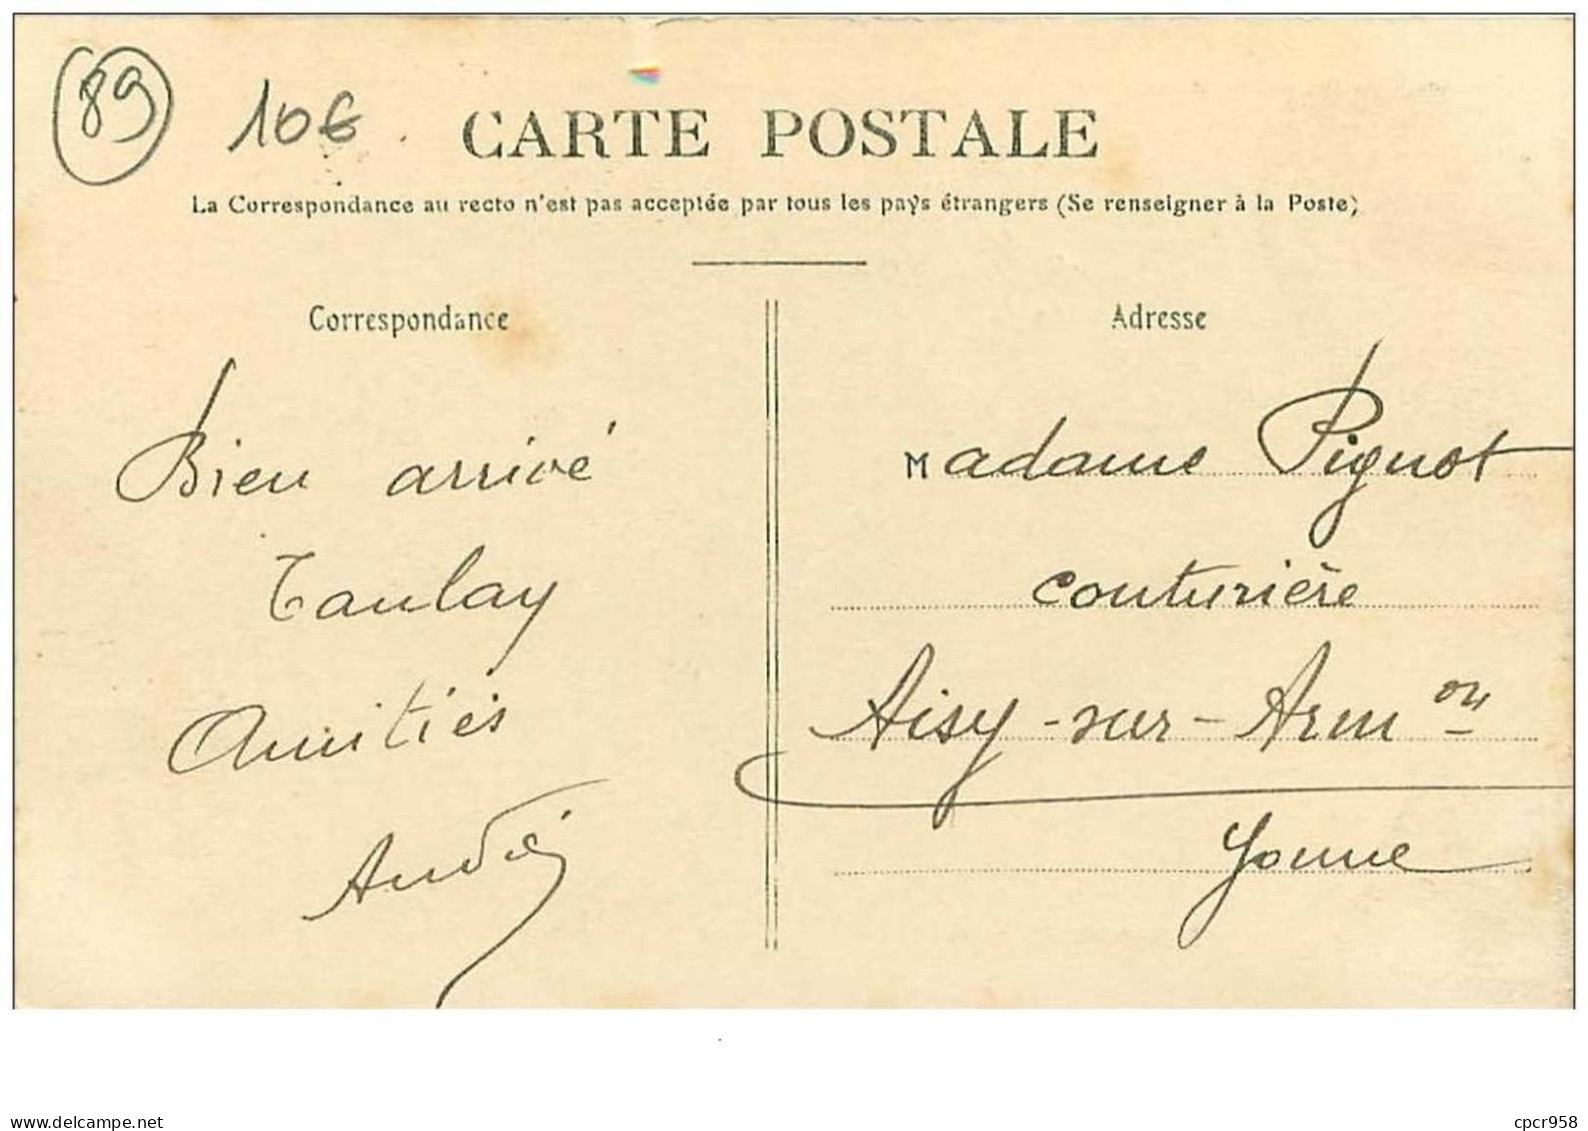 89
10€
CARTE POSTALE
La Correspondance au recto n'est pas acceptée par tous les pays étrangers (Se renseigner à la Poste)
Correspondance
Bien arrivé
Tanlay
Amitiés
André
Adresse
Madame Pignot
couturière
Aisy-sur-Armon
Yonne
www.delcampe.net
cpcr958